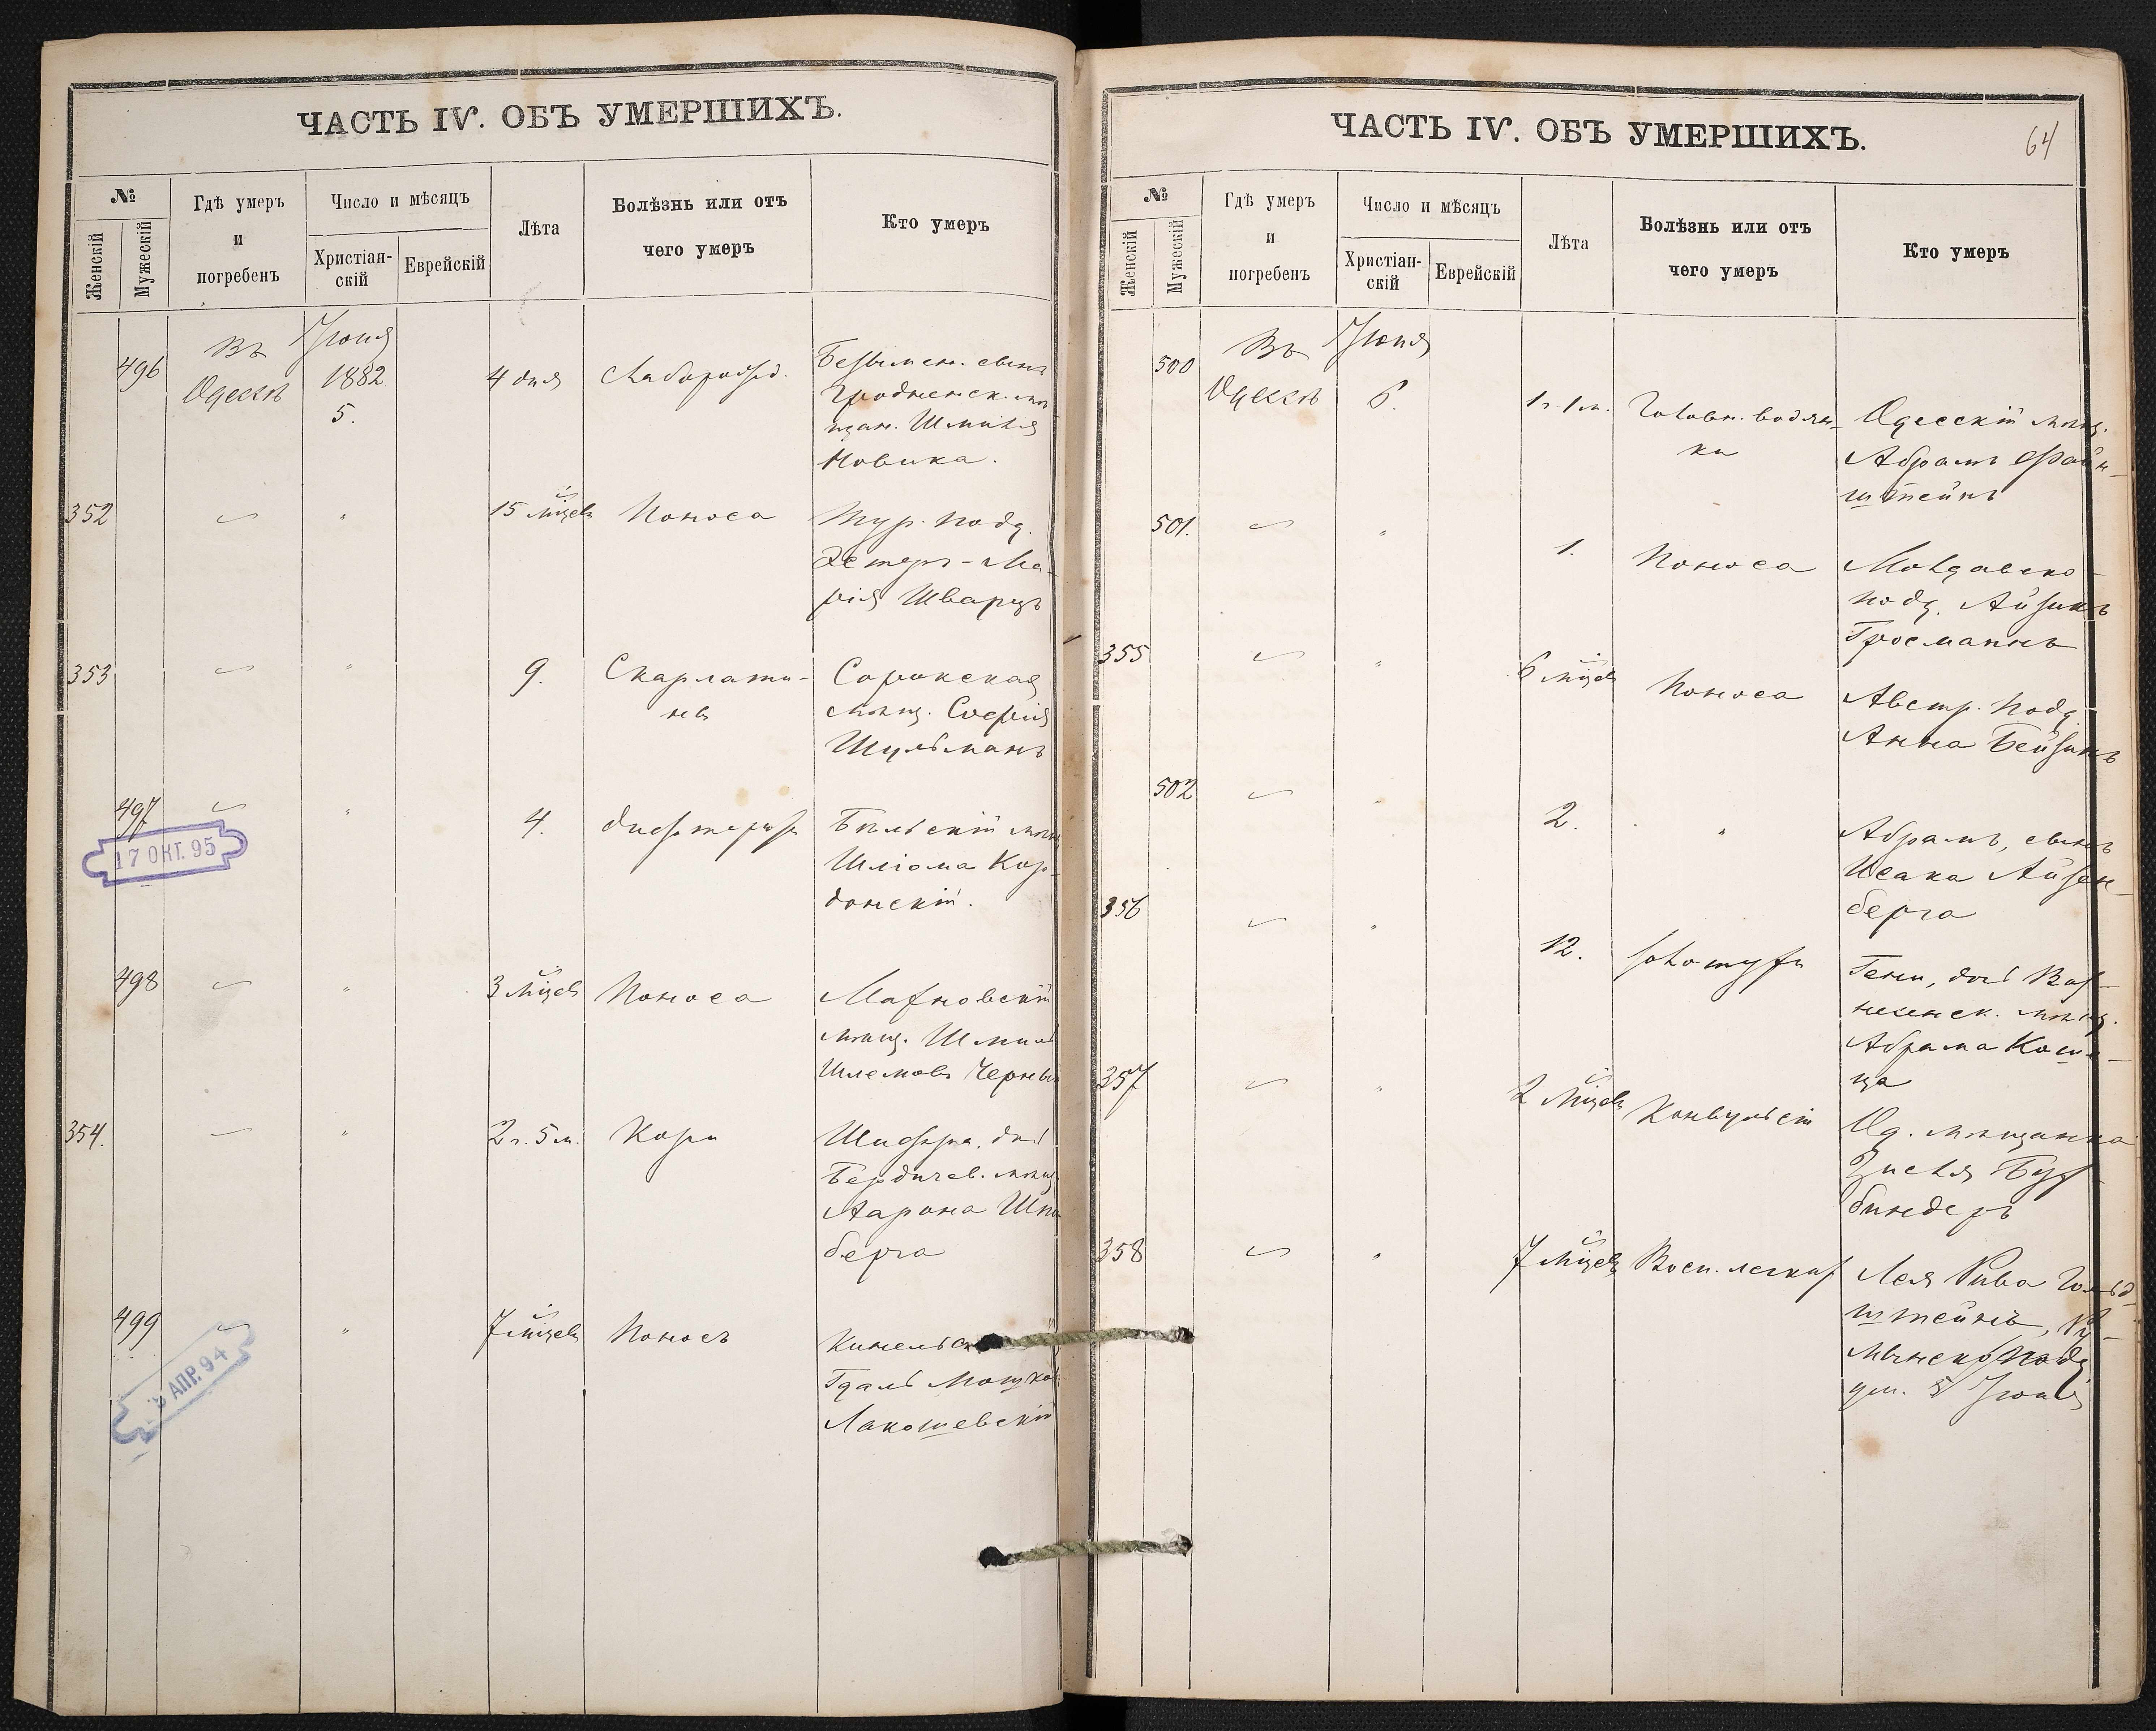 ЧАСТЬ IV. ОБЪ УМЕРШИХЪ.
№
Женскій
Мужескій
Гдѣ умеръ
и
погребенъ
Число и мѣсяцъ
Христіан-
скій
Еврейскій
Лѣта
Болѣзнь или отъ
чего умеръ
Кто умеръ
496
Въ
Одессѣ
Іюня
1882.
5.
4 дня
Слаборожд.
Безъимен. сынъ
Гродненск. мѣ
щан. Шмиля
Новика.
352
15 мѣсяцевъ
Поноса
Тур. подд.
Эстеръ-Ма-
рія Шварцъ
353
9.
Скарлати-
на
Сорокская
мѣщ. Софія
Шульманъ
497
17 ОКТ. 95
4.
дифтерита
Бѣльскій мѣщ
Шліома Кор-
донскій.
498
3 мѣсяцевъ
Поноса
Махновскій
мѣщ. Шмиль
Шлемовъ Черный
354.
2 г. 5 м.
Кори
Шифра, дочь
Бердичев. мѣщ.
Аарона
берга
499
АПР. 94
7 мѣсяцевъ
Поносъ
Гдаль Мошков
Лакошевскій
ЧАСТЬ IV. ОБЪ УМЕРШИХЪ.
64
№
Женскій
Мужескій
Гдѣ умеръ
и
погребенъ
Число и мѣсяцъ
Христіан-
скій
Еврейскій
Лѣта
Болѣзнь или отъ
чего умеръ
Кто умеръ
500
Въ
Одессѣ
Іюня
6.
1 г. 1 м.
Головн. водян-
ки
Одесскій мѣщ.
Абрамъ Файн-
штейнъ
501.
1.
Поноса
Молдавско-
подд. Айзикъ
Гросманнъ
355
6 мѣсяцевъ
Поноса
Австр. подд.
Анна Бейзинъ
502
2.
Абрамъ, сынъ
Исака Айзен-
берга
356
12.
Золотухи
Гени, дочь Воз-
несенск. мѣщ.
Абрама
ца
357
2 мѣсяцевъ
Конвульсіи
Од. мѣщанка
Цисля Бух-
биндеръ
358
7 мѣсяцевъ
Восп. легких
Лея Рива Гольд-
штейнъ, Ру-
мынско подд.
ум. 5 Іюня